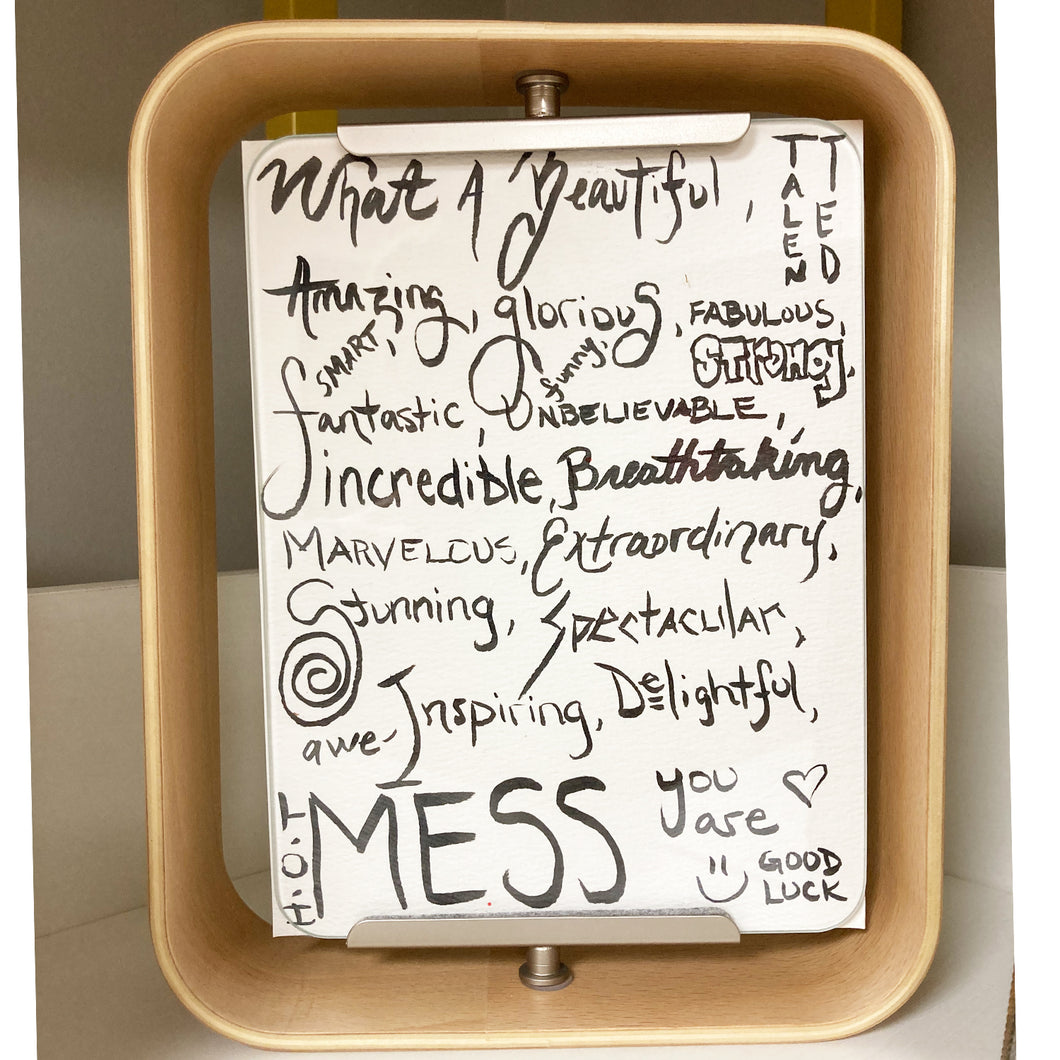 What A Beautiful,
TALEN
TED
Amazing, glorious, FABULOUS,
SMART, funny, STRONG,
fantastic, UNBELIEVABLE,
incredible, Breathtaking,
MARVELOUS, Extraordinary,
Stunning, Spectacular,
awe-Inspiring, Delightful,
H.O.T MESS
you are ♡
GOOD
LUCK